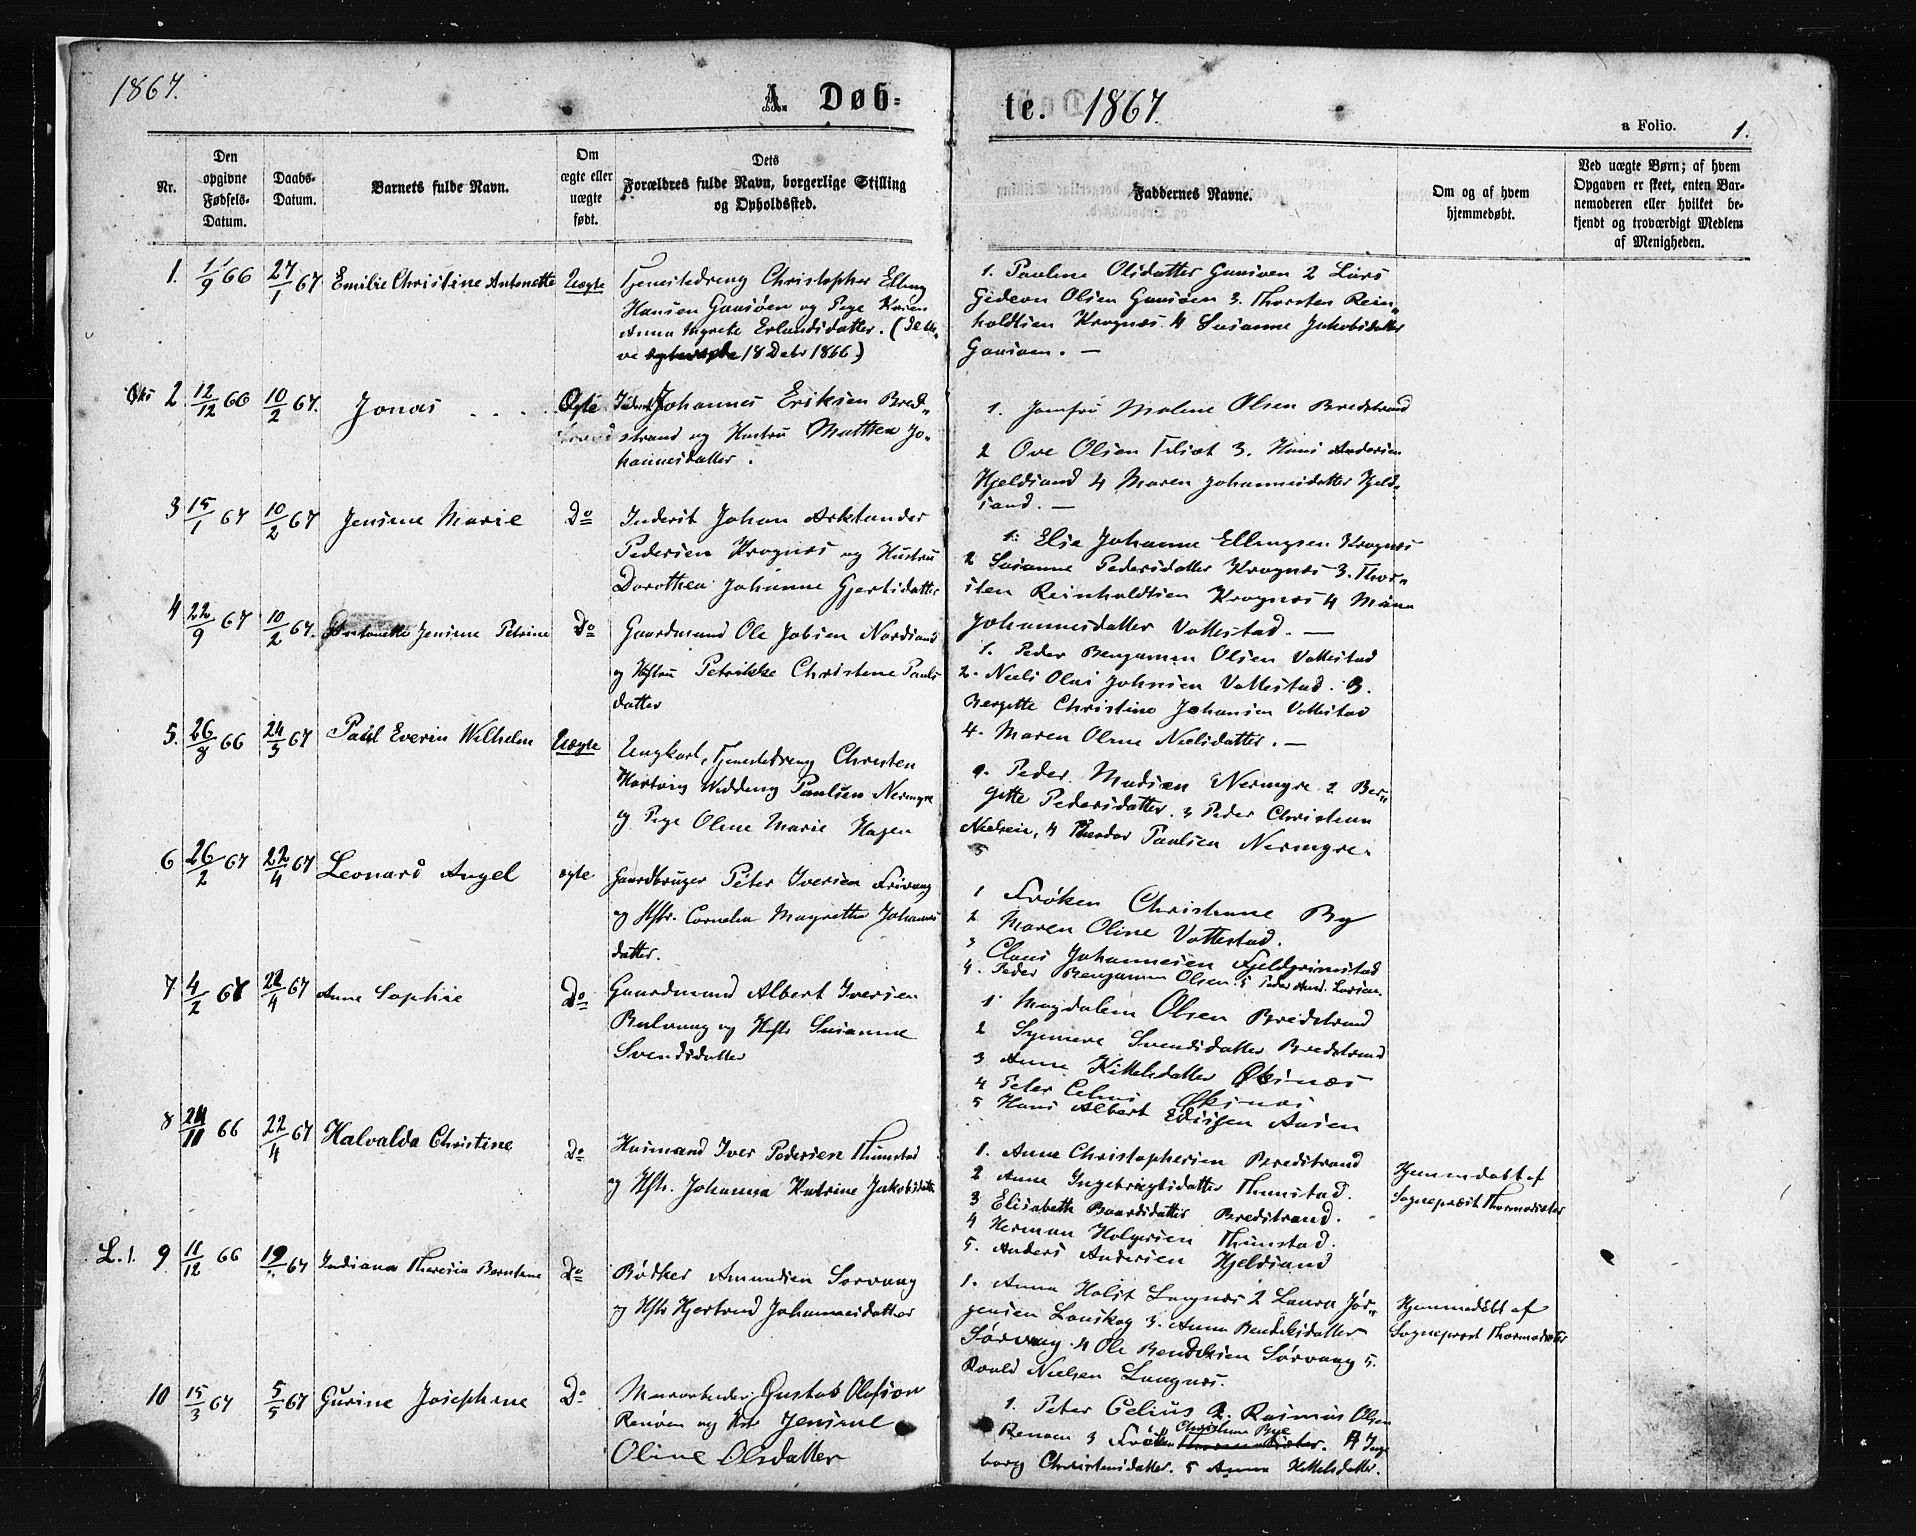 1867.
A. Døb-
te. 1867
a Folio. 1.
Nr.
Den opgivne Fødsels-Datum.
Daabs-Datum.
Barnets fulde Navn.
Om ægte eller uægte født.
Dets Forældres fulde Navn, borgerlige Stilling og Opholdssted.
Faddernes Navne.
Om og af hvem hjemmedøbt.
Ved uægte Børn; af hvem Opgaven er skeet, enten Barnemoderen eller hvilket bekjendt og troværdigt Medlem af Menigheden.
1. 11/9 66 27/1 67 Emilie Christine Antonette Uægte
Tjenestedreng Christopher Elling
Hansen Gaasøen og Pige Karen
Anna Magrete Erlandsdatter.
18 Debr 1866)
1. Pauline Olsdatter Gaasøen 2 Lars
Gideon Olsen Gaasøen 3. Thorsten Rein-
holdtsen Krognæs 4 Susanne Jakobsdatter
Gaasøen. —
2 12/12 66 10/2 67. Jonas Ægte
Johannes Eriksen Bred-
strand og Hustru Mathea Jo-
hannesdatter.
1. Jomfru Malene Olsen Bredstrand
2 Ove Olsen 3. Hans Andersen
Hjeldsand 4 Maren Johannesdatter Hjeld-
sand. —
3 15/1 67 10/2 67 Jensine Marie Do
Inderst Johan Arktander
Pedersen Krognæs og Hustru
Dorothea Johanne Gjertsdatter
1. Else Johanne Ellingsen Krognæs
2 Susanne Pedersdatter Krognæs 3. Thor-
sten Reinholdtsen Krognæs 4
Johannesdatter Vottestad. —
4 22/9 67 10/2 67. Antonette Jensine Petrine Do
Gaardmand Ole Jobsen Nordsand
og Hstru Petrikke Christene Pauls
datter
1. Peder Benjamin Olsen Vottestad
2. Niels Olai Johnsen Vottestad. 3.
Bergette Christine Johansen Vottestad
4. Maren Oline Nielsdatter. —
5. 26/8 66 24/3 67 Paul Everin Wilhelm Uægte
Ungkarl, Tjenestedreng Christen
Hartvig Wedding Paulsen Nermyre
og Pige Oline Marie Hagen
Peder Madsen Nermyre 2 Ber-
gette Pedersdatter. 3 Peder Christian
Nielsen, 4 Theodor Paulsen Nermyre.
5
6 26/2 67 22/4 67 Leonard Angel ægte
Gaardbruger Peter Iversen Frivaag
og Hstr. Cornelia Magrethe Johannes
datter.
1 Frøken Christiane By
2 Maren Oline Vottestad.
3 Claus Johannesen Fjeldgrimstad
4. Peder Benjamin Olsen. 5 Peder And. Larsen.
7 4/2 67 22/4 67 Anne Sophie Do
Gaardmand Albert Iversen
og Hstr Susanne
Svendsdatter
1 Magdalena Olsen Bredstrand
2 Synnere Svendsdatter Bredstrand
3 Anne Kittelsdatter Øksnæs
4 Peter Celius Øksnæs
5 Hans Albert Edisen Aasen
8 24/11 66 22/4 67 Halvalda Christine Do
Husmand Iver Pedersen Thunstad
og Hstr. Johanna Katrine Jakobsdatter
1. Anne Christophersen Bredstrand
2 Anne Ingebrigtsdatter Thunstad.
3 Elisabeth Baardsdatter Bredstrand.
4 Herman Holgersen Thunstad.
5. Anders Andersen Hjeldsand
Hjemmedøbt af
Sognepræst Thormodsæter
L. 1. 9. 11/12 66 19/ 67 Indiana Theresia Berntine Do
Bødker Amundsen Sørvaag
og Hstr Hjertrud Johannesdatter
1. Anna Holst Langnæs 2 Laura Jør-
gensen Lanskog 3. Anna Bendiksdatter
Sørvaag. 4 Ole Bendiksen Sørvaag 5.
Roald Nielsen Langnæs.
Hjemmedøbt af
Sognepræst Thormodsæter
10 15/3 67 5/5 67 Gurine Josephine Do
Murarbeider Gustav Olafson
Renøen og Hstr Jensine
Oline Olsdatter
1. Peter Celius 2. Rasmus Olsen
Renøen 3 Frøken Christiane Bye 4 Inge
borg Christensdatter. 5 Anna Kittelsdatter.